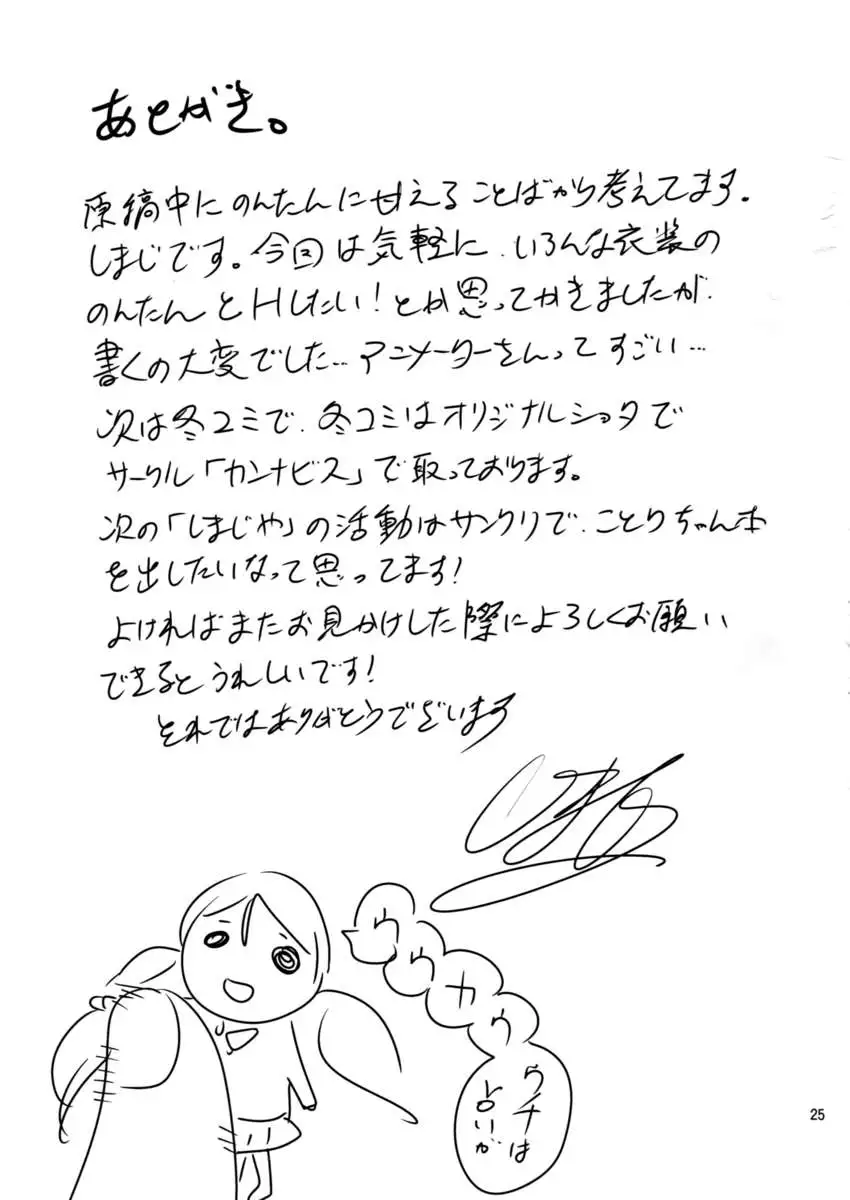 あとがき。
原稿中にのんたんに甘えることばかり考えてます。
しまじです。今回は気軽に、いろんな衣装の
のんたんとHしたい!とか思ってかきましたが、
書くの大変でした…アニメーターさんってすごい…
次は冬コミで、冬コミはオリジナルショタで
サークル「カンナビス」で取っております。
次の「しまじや」の活動はサンクリで、ことりちゃん本
を出したいなって思ってます!
よければまたお見かけした際によろしくお願い
できるとうれしいです!
それではありがとうございます
しまじ
ウウカウ
ウチは
占いが
25